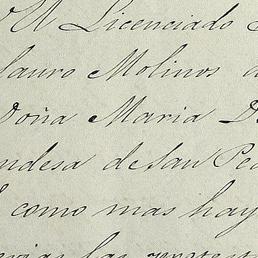 Licenciado
lauro Molinos
Doña Maria D
ndesa de San Ped
como mas hay
las